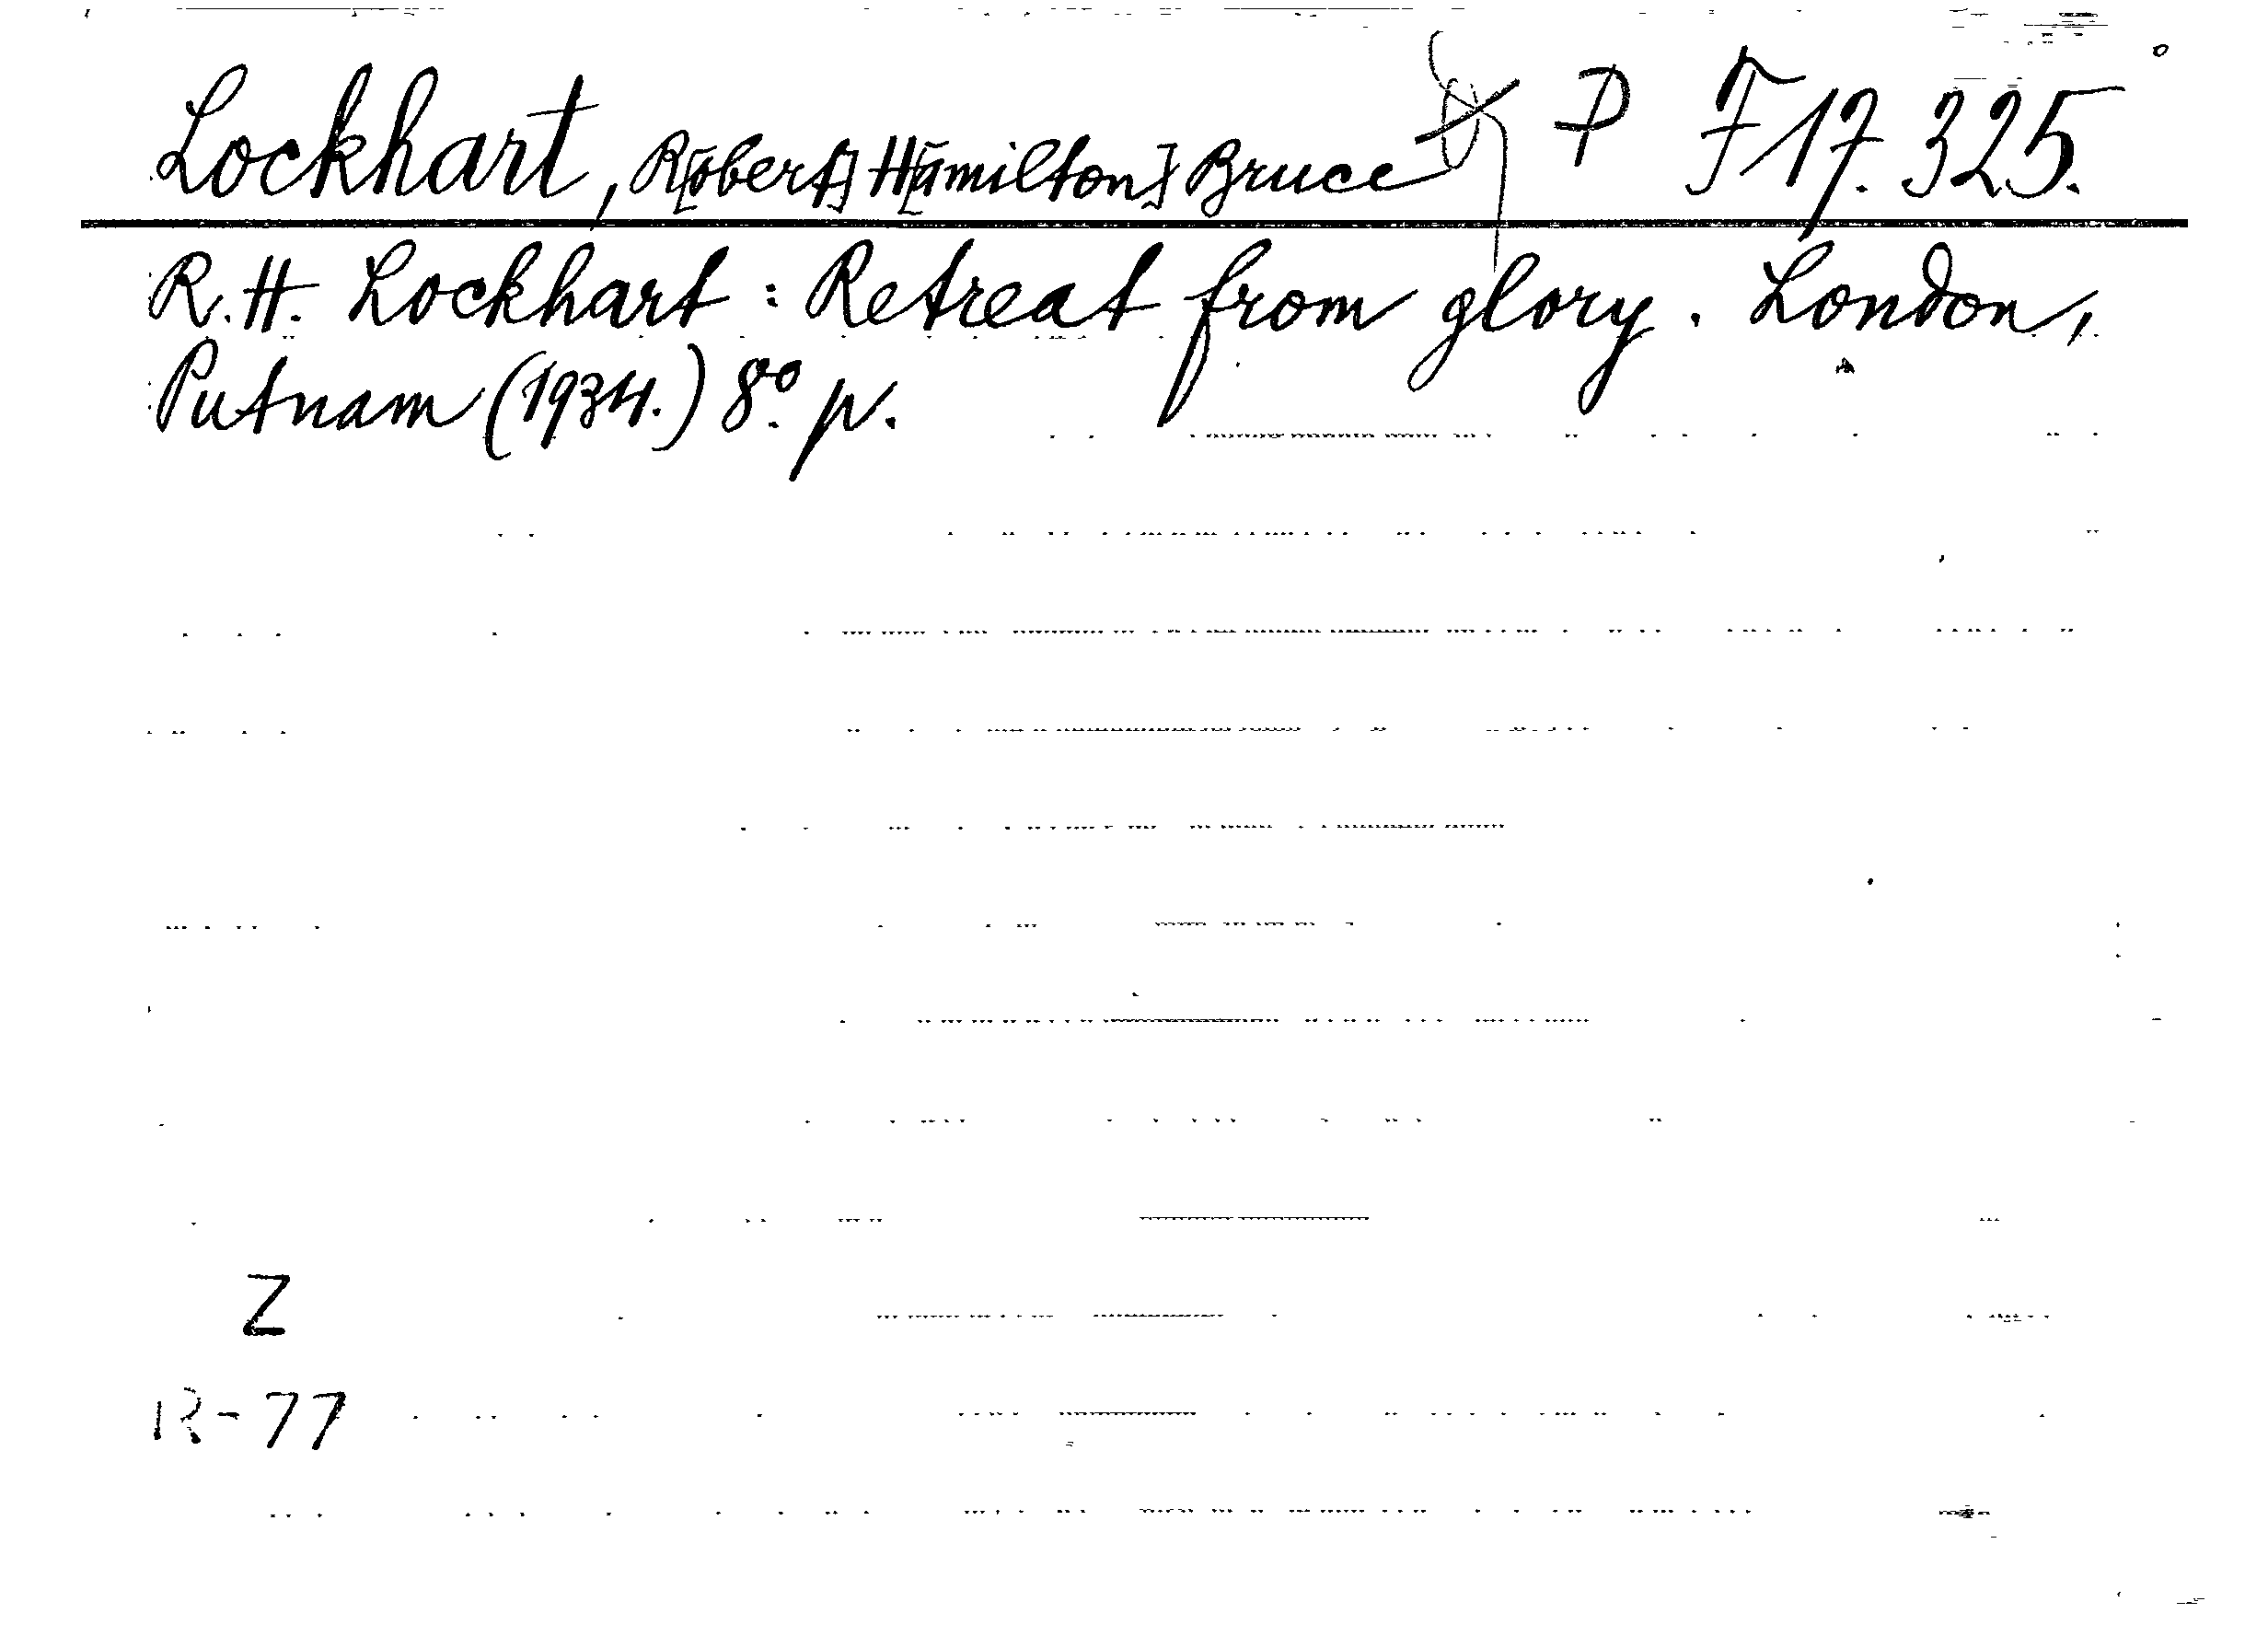 Lockhart, R[obert] H[amilton] Bruce P F 17.325.
R.H. Lockhart: Retreat from glory. London,
Putnam (1934.) 8° p.
Z
R-77